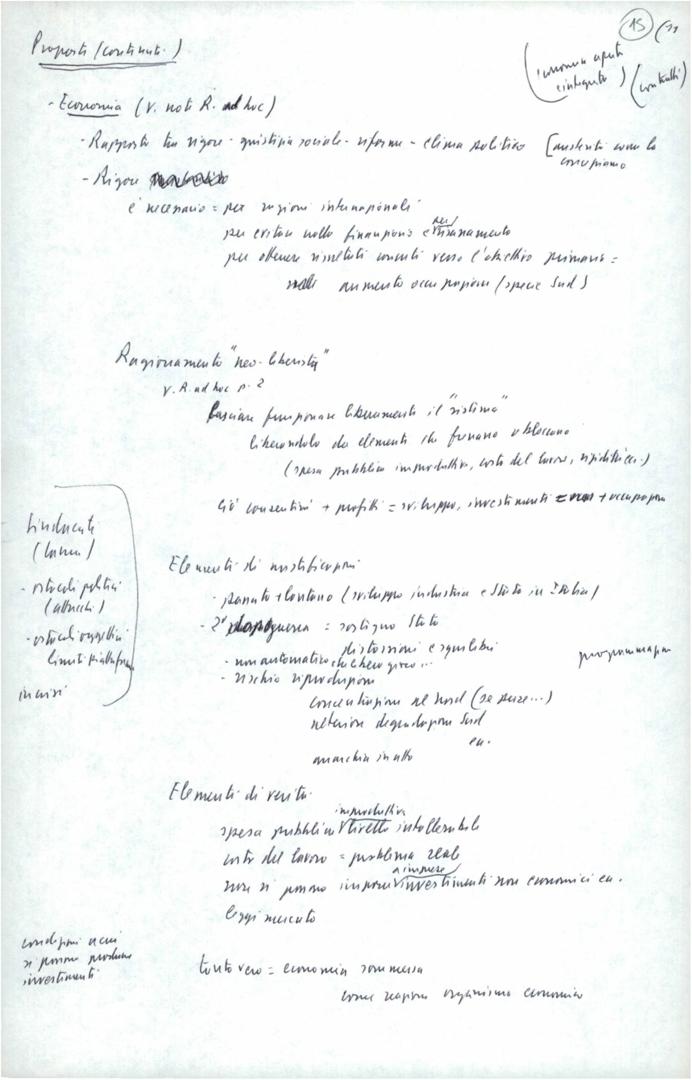 15
Proposte (continuit.)
(economia aperta
e integrata) (contratti)
- Economia (v. note R. ad hoc)
- Rapporto tra rigore - giustizia sociale - riforme - clima politico [austerità come la
concepiamo
- Rigore
è necessario = per ragioni internazionali
per evitare crollo finanziario e per risanamento
per ottenere risultati concreti verso l'obiettivo primario =
aumento occupazione (specie Sud)
Ragionamento "neo-liberista"
v. R. ad hoc p. 2
Lasciare funzionare liberamente il "sistema"
liberandolo da elementi che frenano o bloccano
(spesa pubblica improduttiva, costo del lavoro, rigidità ecc.)
Ciò consentirà + profitti = sviluppo, investimenti = + occupazione
Sindacate
(Lama)
- ostacoli politici
(attacchi)
- ostacoli oggettivi
limiti piattaforma
Elementi di mistificazione
- passato + lontano (sviluppo industria e Stato in Italia)
- 2° dopoguerra = sostegno Stato
distorsioni e squilibri
- non automatico che libero gioco...
- rischio riproduzione
programmazione
concentrazione nel Nord (se pure...)
ulteriore degradazione Sud
ecc.
anarchia in atto
Elementi di verità
spesa pubblica improduttiva livello intollerabile
costo del lavoro = problema reale
non si possono imporre a imprese investimenti non economici ecc.
leggi mercato
condizioni a cui
si possono produrre
investimenti
tanto vero = economia sommersa
come reazione organismo economico